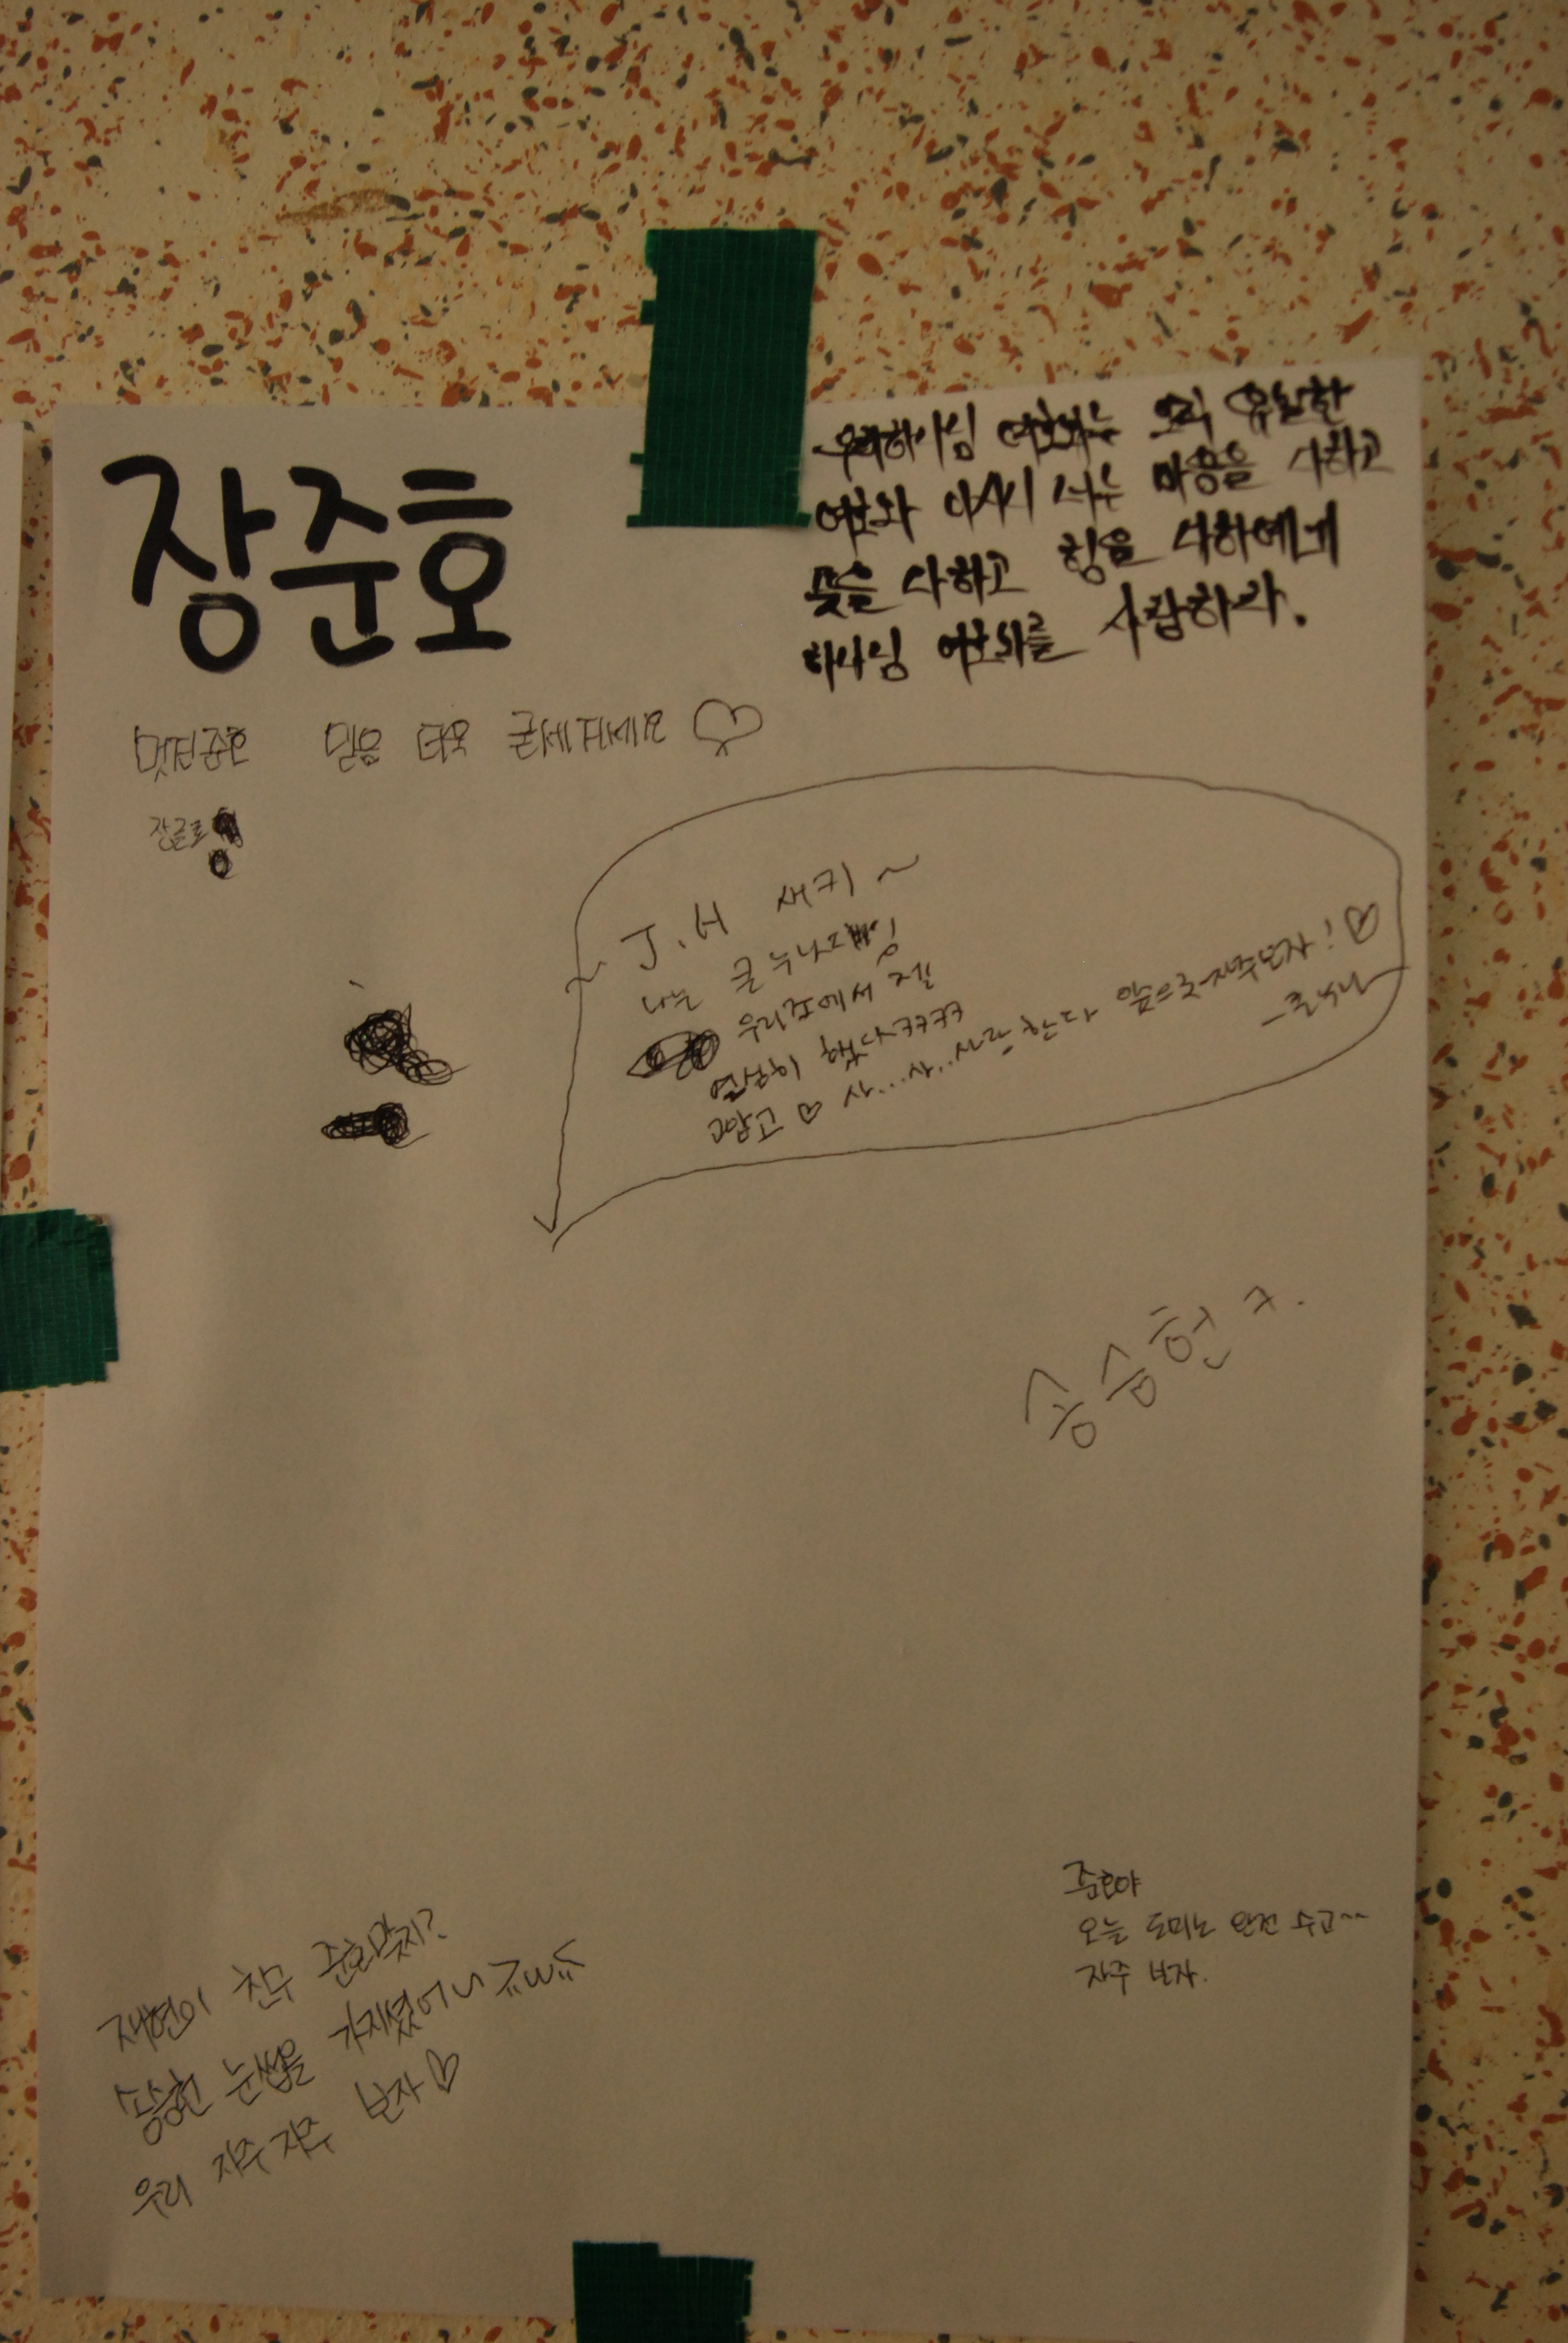 장준호
우리하나님 여호와는 오직 유일한
여호와 이시니 너는 마음을 다하고
뜻을 다하고 힘을 다하여
하나님 여호와를 사랑하라.
멋진준호 믿음 더욱 굳세지세요♡
장글로
J.H 새키~
나는 큰누나
우리조에서 제일
열심히 했다ㅋㅋㅋㅋ
고 ♡ 사...사...사랑한다 앞으로자주보자! ♡
-큰누나
송승헌ㅋ.
준호야
오늘 도미노 완전 수고~~
자주 보자.
재현이 친구 준호맞지?
송승헌 눈썹을 가지셨어
우리 자주자주 보자♡